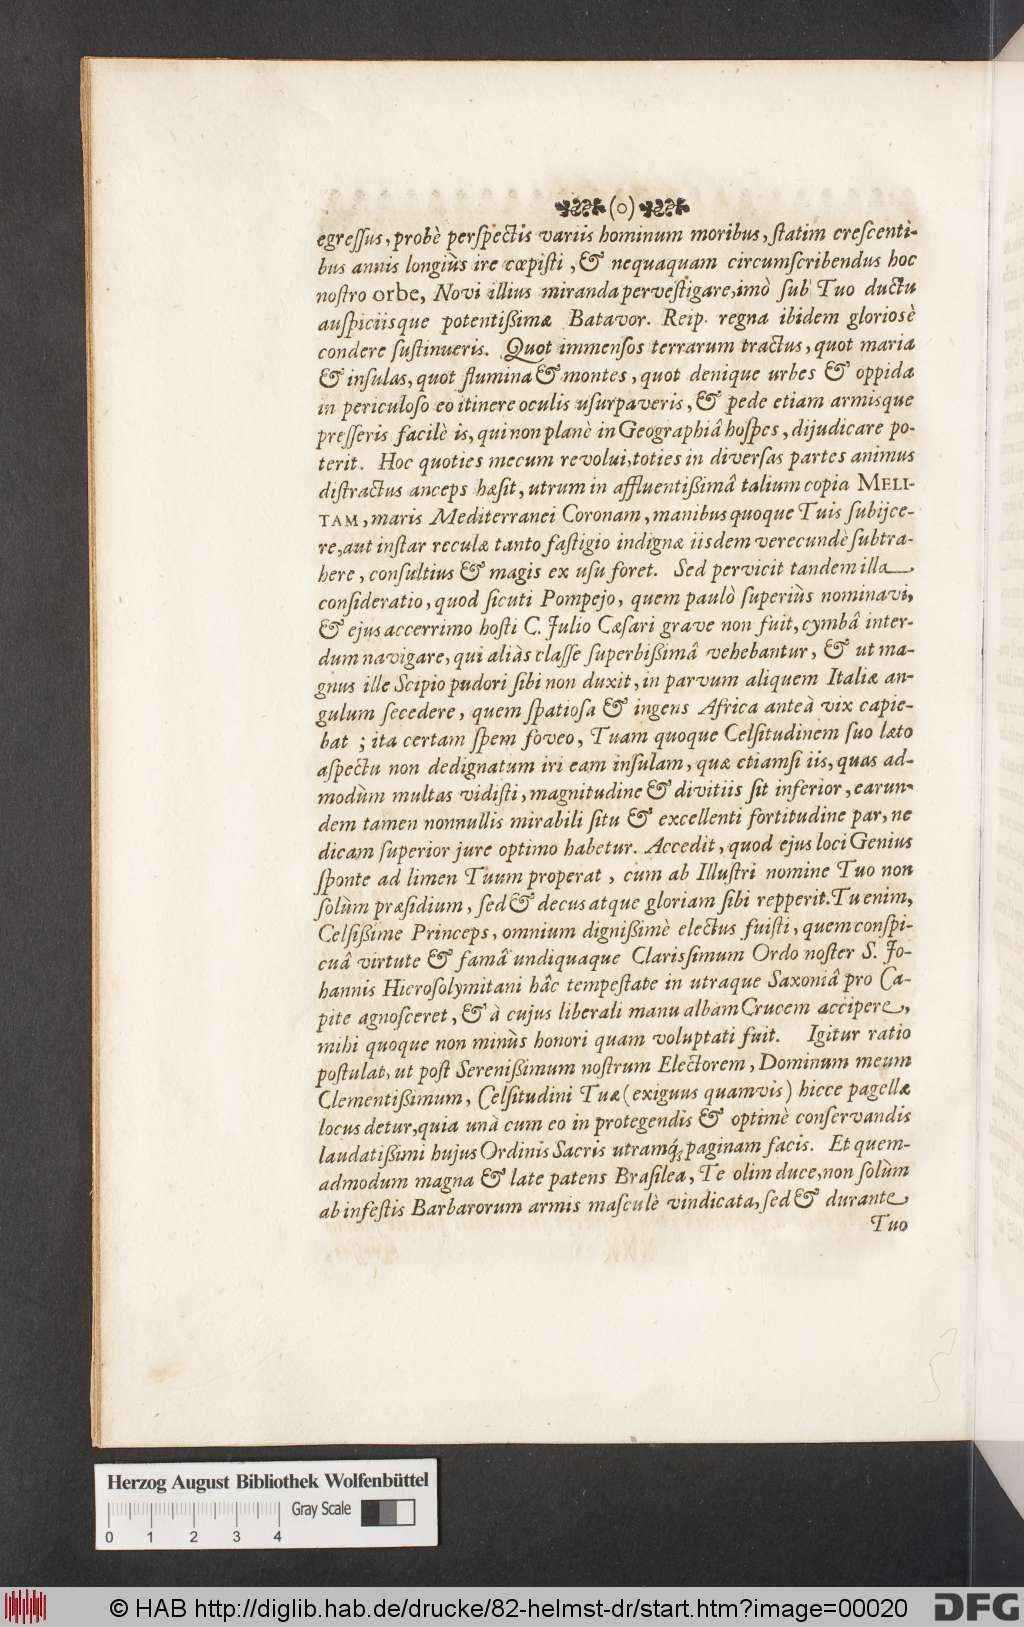 (o)
egreſſus, probè perſpectis variis hominum moribus, ſtatim creſcenti-
bus annis longiùs ire cœpiſti, & nequaquam circumſcribendus hoc
noſtro orbe, Novi illius miranda perveſtigare, imò ſub Tuo ductu
auſpiciisque potentißimæ Batavor. Reip. regna ibidem glorioſè
condere ſuſtinueris. Quot immenſos terrarum tractus, quot maria
& inſulas, quot flumina & montes, quot denique urbes & oppida
in periculoſo eo itinere oculis uſurpaveris, & pede etiam armisque
preſſeris facilè is, qui non planè in Geographiâ hoſpes, dijudicare po-
terit. Hoc quoties mecum revolui, toties in diverſas partes animus
diſtractus anceps hæſit, utrum in affluentißimâ talium copia MELI-
TAM, maris Mediterranei Coronam, manibus quoque Tuis ſubijce-
re, aut inſtar reculæ tanto faſtigio indignæ iisdem verecundè ſubtra-
here, conſultius & magis ex uſu foret. Sed pervicit tandem illa
conſideratio, quod ſicuti Pompejo, quem paulò ſuperiùs nominavi,
& ejus accerrimo hoſti C. Julio Cæſari grave non fuit, cymbâ inter-
dum navigare, qui aliàs claſſe ſuperbißimâ vehebantur, & ut ma-
gnus ille Scipio pudori ſibi non duxit, in parvum aliquem Italiæ an-
gulum ſecedere, quem ſpatioſa & ingens Africa anteà vix capie-
bat ; ita certam ſpem foveo, Tuam quoque Celſitudinem ſuo læto
aſpectu non dedignatum iri eam inſulam, quæ etiamſi iis, quas ad-
modùm multas vidiſti, magnitudine & divitiis ſit inferior, earun-
dem tamen nonnullis mirabili ſitu & excellenti fortitudine par, ne
dicam ſuperior jure optimo habetur. Accedit, quod ejus loci Genius
ſponte ad limen Tuum properat, cum ab Illuſtri nomine Tuo non
ſolùm præſidium, ſed & decus atque gloriam ſibi repperit. Tu enim,
Celſißime Princeps, omnium dignißimè electus fuiſti, quem conſpi-
cuâ virtute & famâ undiquaque Clarissimum Ordo noſter S. Jo-
hannis Hieroſolymitani hâc tempeſtate in utraque Saxoniâ pro Ca-
pite agnoſceret, & à cujus liberali manu albam Crucem accipere,
mihi quoque non minùs honori quam voluptati fuit. Igitur ratio
poſtulat, ut poſt Serenißimum noſtrum Electorem, Dominum meum
Clementißimum, Celſitudini Tuæ (exiguus quamvis) hicce pagellæ
locus detur, quia unà cum eo in protegendis & optimè conſervandis
laudatißimi hujus Ordinis Sacris utramq́; paginam facis. Et quem-
admodum magna & late patens Braſilea, Te olim duce, non ſolùm
ab infeſtis Barbarorum armis maſculè vindicata, ſed & durante
Tuo
Herzog August Bibliothek Wolfenbüttel
Gray Scale
0 1 2 3 4
© HAB http://diglib.hab.de/drucke/82-helmst-dr/start.htm?image=00020
DFG